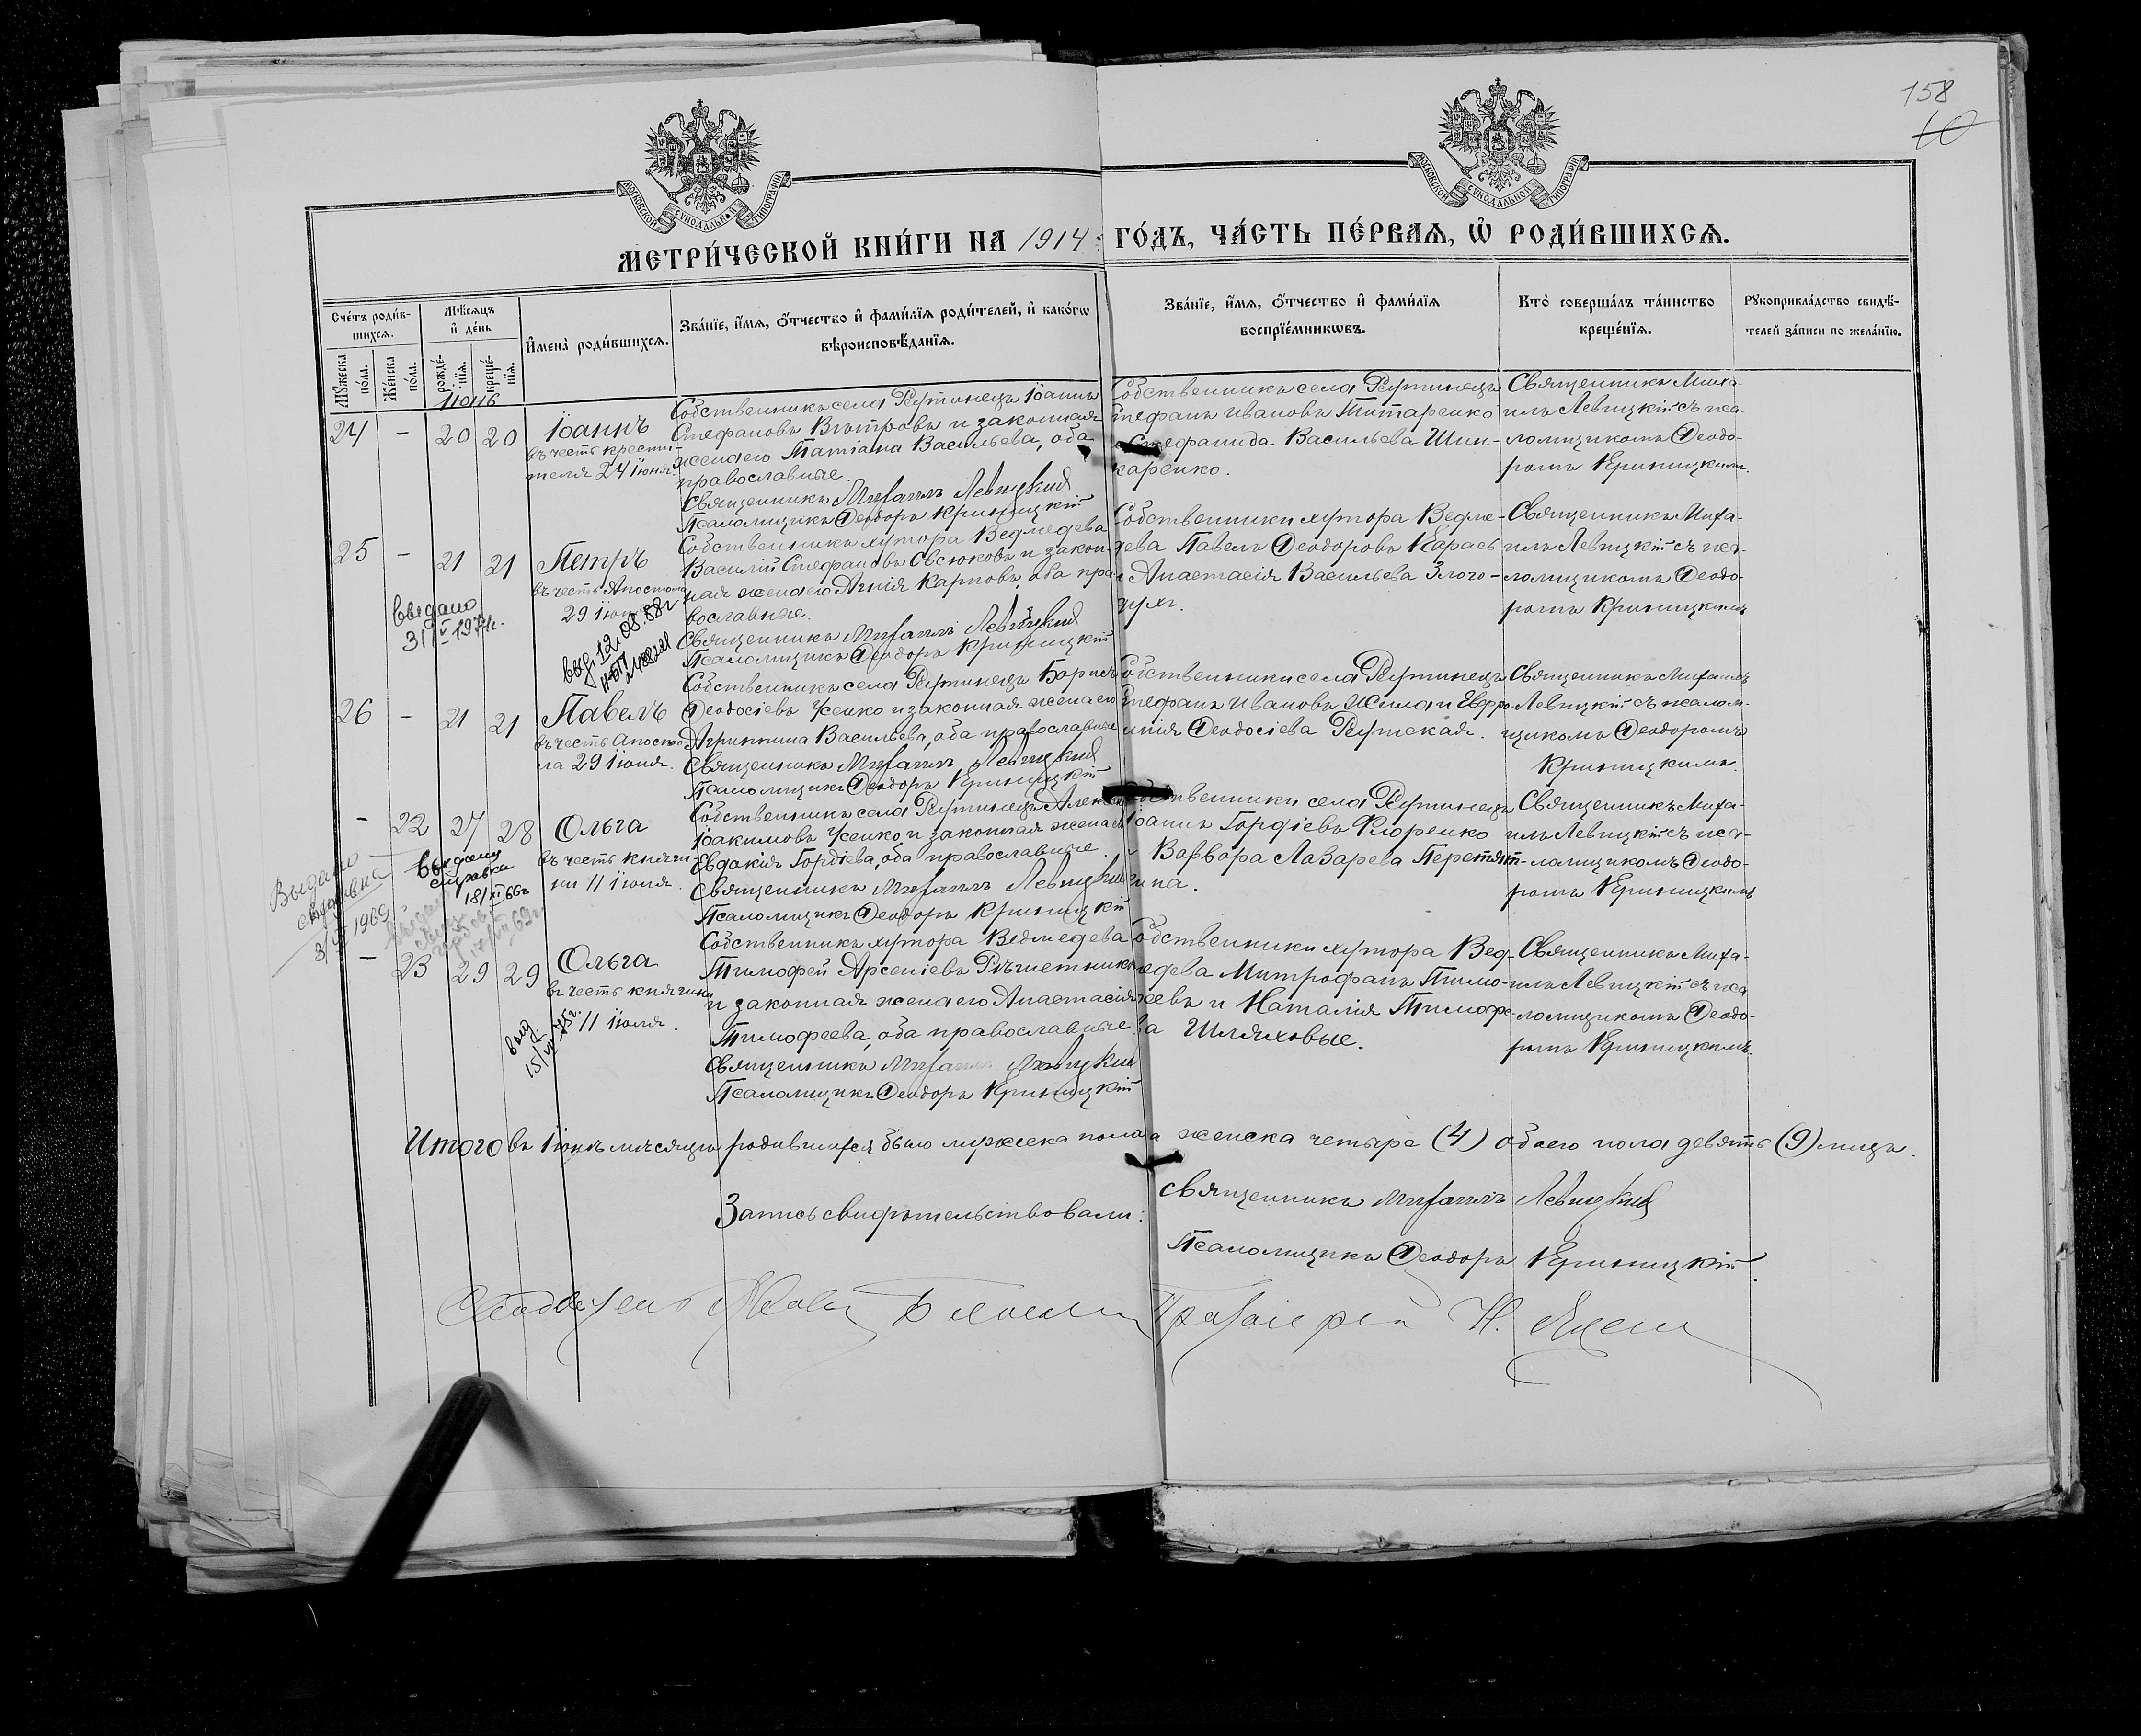 158
10
МОСКОВСКОЙ СѴНОДАЛЬНОЙ ТИПОГРАФІИ
МОСКОВСКОЙ СѴНОДАЛЬНОЙ ТИПОГРАФІИ
МЕТРИ́ЧЕСКОЙ КНИ́ГИ НА 1914 ГО́ДЪ, ЧА́СТЬ ПЕ́РВАѦ, Ѡ҆ РОДИ́ВШИХСѦ.
Сче́тъ роди́в-
шихсѧ.
Мꙋ́жеска по́ла.
Же́нска по́ла.
Мѣ́сѧцъ
и҆ де́нь
рожде́-
нїѧ.
креще́-
нїѧ.
И҆мена̀ роди́вшихсѧ.
Зва́нїе, и҆́мѧ, ѻ҆́тчество и҆ фами́лїѧ роди́телей, и҆ како́гѡ
вѣроисповѣ́данїѧ.
Зва́нїе, и҆́мѧ, ѻ҆́тчество и҆ фами́лїѧ
воспрїе́мникѡвъ.
Кто̀ соверша́лъ та́инство
креще́нїѧ.
Рꙋкоприкла́дство свидѣ́-
телей за́писи по жела́нїю.
Іюнь
24 - 20 20
Іоаннъ
въ честь крести-
теля 24 іюня.
Собственникъ села Рутинецъ Іоаннъ
Стефановъ Вѣтровъ и законная
жена его Татіана Васильева, оба
православные.
Священникъ Михаилъ Левицкій
Псаломщикъ Ѳеодоръ Криницкій
Собственники села Рутинецъ
Стефанъ Ивановъ Титаренко
и Стефанида Васильева Шин-
каренко.
Священникъ Миха-
илъ Левицкій съ пса-
ломщикомъ Ѳеодо-
ромъ Криницкимъ.
25 - 21 21
Петръ
въ честь Апостола
29 іюня
Выдано
31/V 1974г.
выд. 12.08.88г
Собственникъ хутора Ведмедева
Василій Стефановъ Овсюковъ и закон-
ная жена его Агнія Карпова, оба пра-
вославные.
Священникъ Михаилъ Левицкій
Псаломщикъ Ѳеодоръ Криницкій
Собственники хутора Ведме-
дева Павелъ Ѳеодоровъ Карась
и Анастасія Васильева Злого-
духъ.
Священникъ Миха-
илъ Левицкій съ пса-
ломщикомъ Ѳеодо-
ромъ Криницкимъ
26 - 21 21
Павелъ
въ честь апосто-
ла 29 іюня.
Собственникъ села Рутинецъ Борисъ
Ѳеодосіевъ Усенко и законная жена его
Агриппина Васильева, оба православные
Священникъ Михаилъ Левицкій
Псаломщикъ Ѳеодоръ Криницкій
Собственники села Рутинецъ
Стефанъ Ивановъ Жила и Евфро-
синія Ѳеодосіева Рутская.
Священникъ Михаилъ
Левицкій съ псалом-
щикомъ Ѳеодоромъ
Криницкимъ.
- 22 27 28
Ольга
въ честь княги-
ни 11 іюля.
Выдана
справка
18/XI 66г
Выдано
3/ 1969
Собственникъ села Рутинецъ Алексѣй
Іоакимовъ Усенко и законная жена его
Евдокія Гордіева, оба православные.
Священникъ Михаилъ Левицкій
Псаломщикъ Ѳеодоръ Криницкій
Собственники села Рутинецъ
Іоаннъ Гордіевъ Фюренко
и Варвара Лазарева Перетят-
ина.
Священникъ Миха-
илъ Левицкій съ пса-
ломщикомъ Ѳеодо-
ромъ Криницкимъ
- 23 29 29
Ольга
въ честь княгини
11 іюля.
выд.
15/VII-75г.
Собственникъ хутора Ведмедева
Тимофей Арсеніевъ Рѣшетниковъ
и законная жена его Анастасія
Тимофеева, оба православные.
Священникъ Михаилъ Левицкій
Псаломщикъ Ѳеодоръ Криницкій
Собственники хутора Вед-
медева Митрофанъ Тимо-
ѳеевъ и Наталія Тимофе-
ева Шляховые.
Священникъ Миха-
илъ Левицкій съ пса
ломщикомъ Ѳеодо-
ромъ Криницкимъ.
Итого въ Іюнѣ мѣсяцѣ родившихся было мужеска пола а женска четыре (4) обоего пола девять (9) лицъ.
Запись свидѣтельствовали:
Священникъ Михаилъ Левицкій
Псаломщикъ Ѳеодоръ Криницкій.